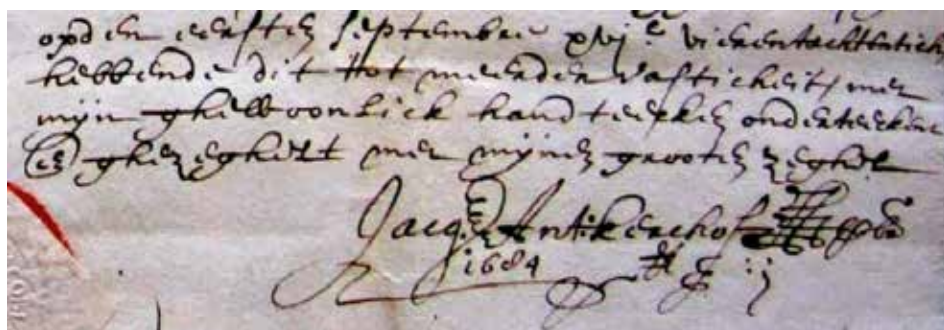 opden eersten septembre xvj.c vierentachtentich
hebbende dit tot meerder vasticheit, met
mijn ghewoonlick handteeken onderteekent
en ghezeghelt met mijnen grooten zeghel
Jacq. Ant. kerchof
1684